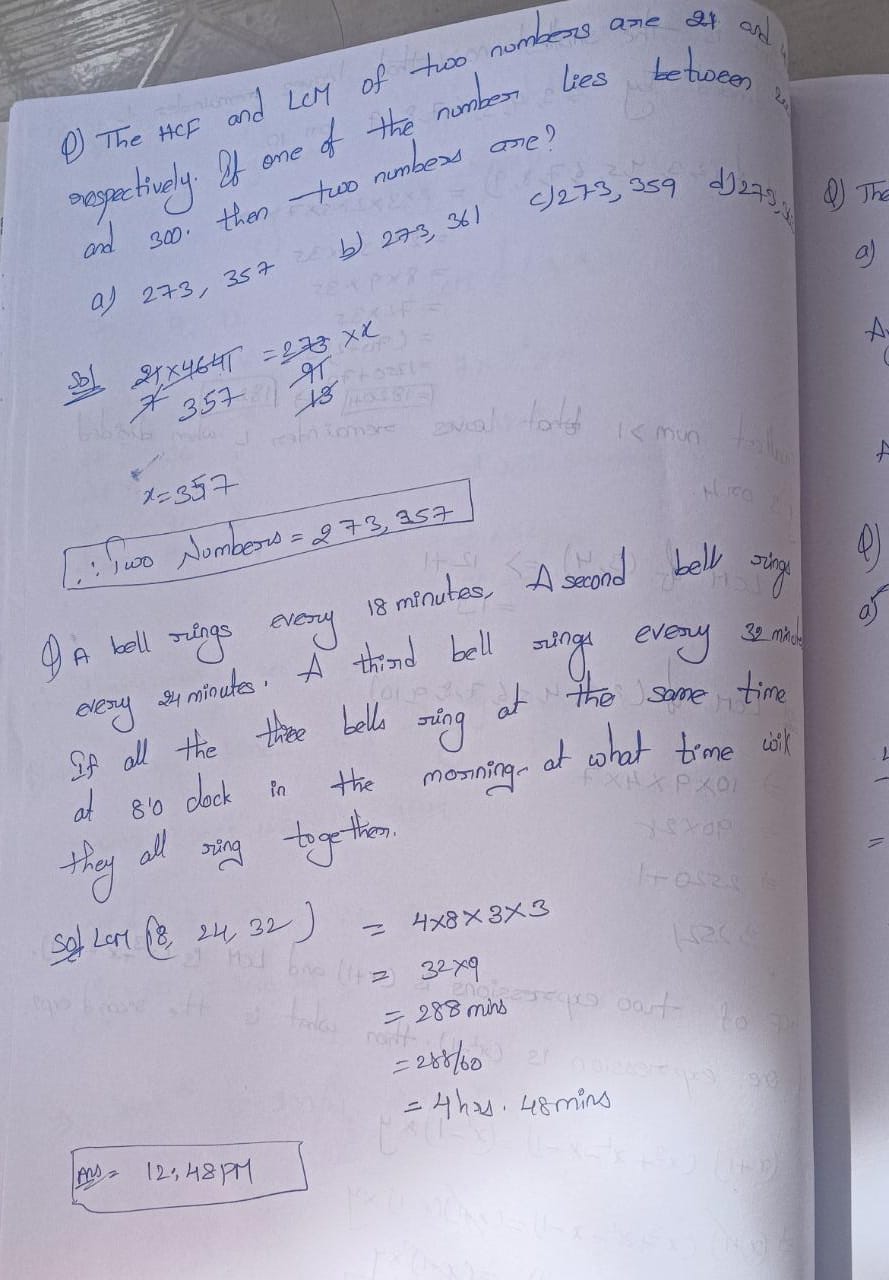 Q) The HCF and LCM of two numbers are 21 and
respectively. If one of the number lies between
and 300. then two numbers are?
a) 273, 357 b) 273, 361 c) 273, 359 d) 273,
Sol 21×4641 = 273 × x
7 357 91 13
x = 357
∴ Two Numbers = 273, 357
Q) A bell rings every 18 minutes, A second bell rings
every 24 minutes. A third bell rings every 32 minutes
If all the three bells ring at the same time
at 8'o clock in the morning. at what time will
they all ring together.
Sol LCM (18, 24, 32) = 4×8×3×3
= 32×9
= 288 mins
= 288/60
= 4 hrs. 48 mins
Ans = 12:48 PM
Q) The
a)
Q)
a)
=